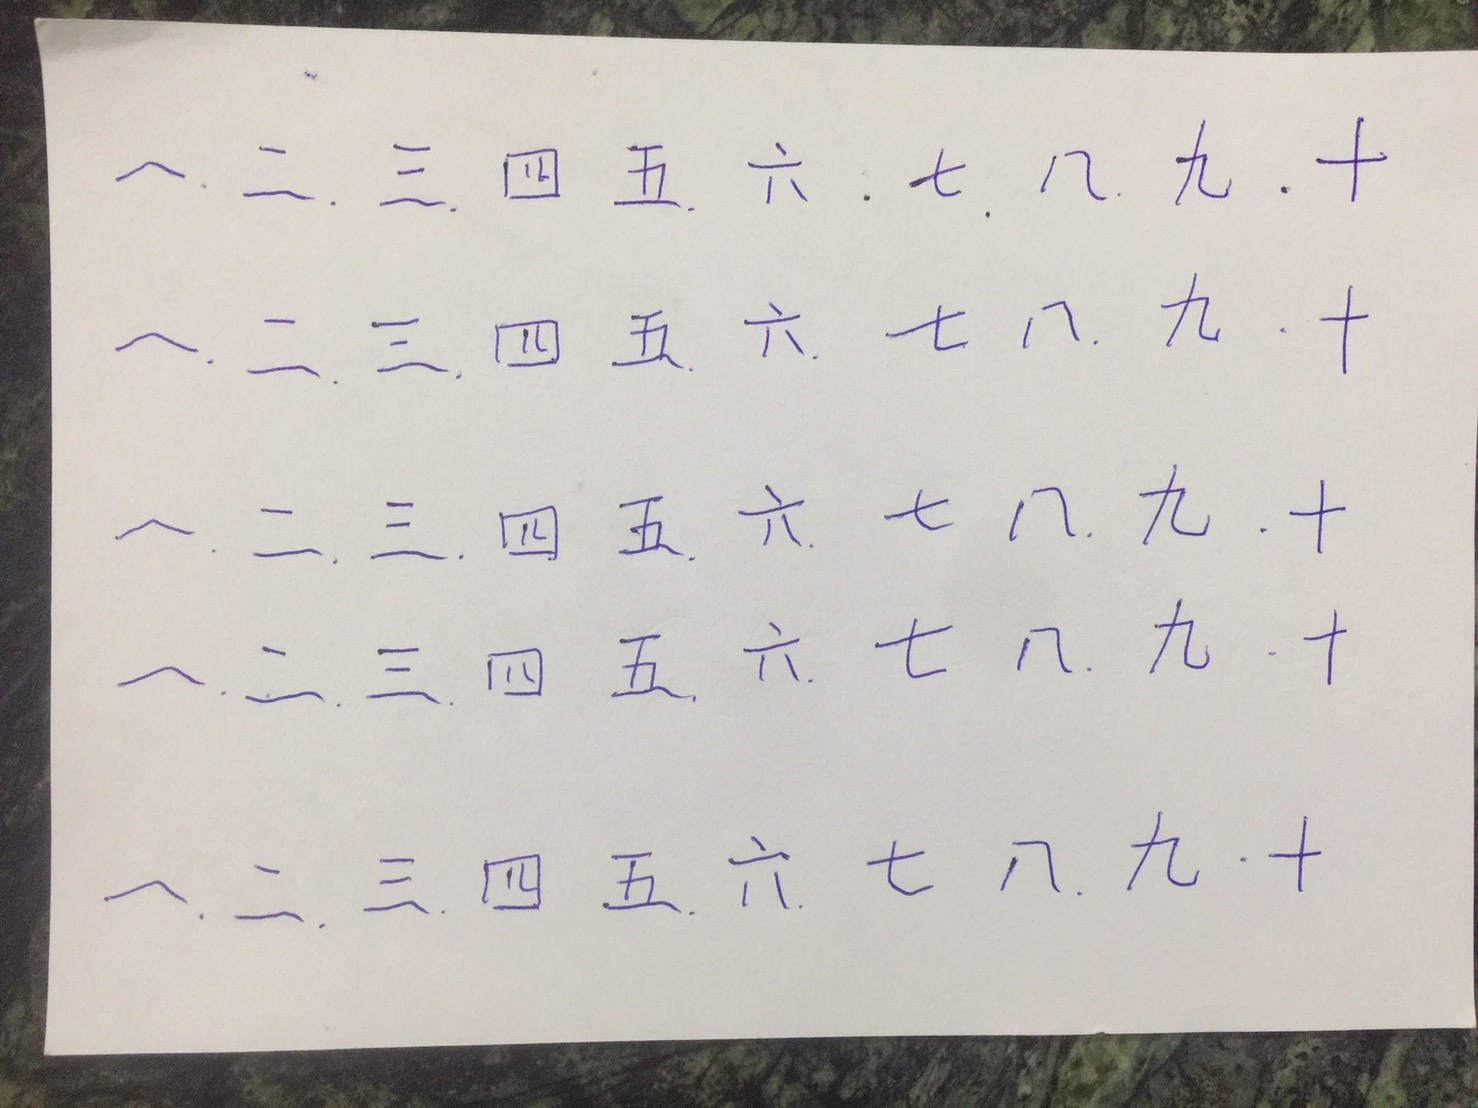 一.二.三.四 五.六.七.八.九.十
一.二.三.四 五.六.七 八.九.十
一.二.三.四 五.六.七 八.九.十
一.二.三.四 五.六.七 八.九.十
一.二.三.四 五.六.七 八.九.十